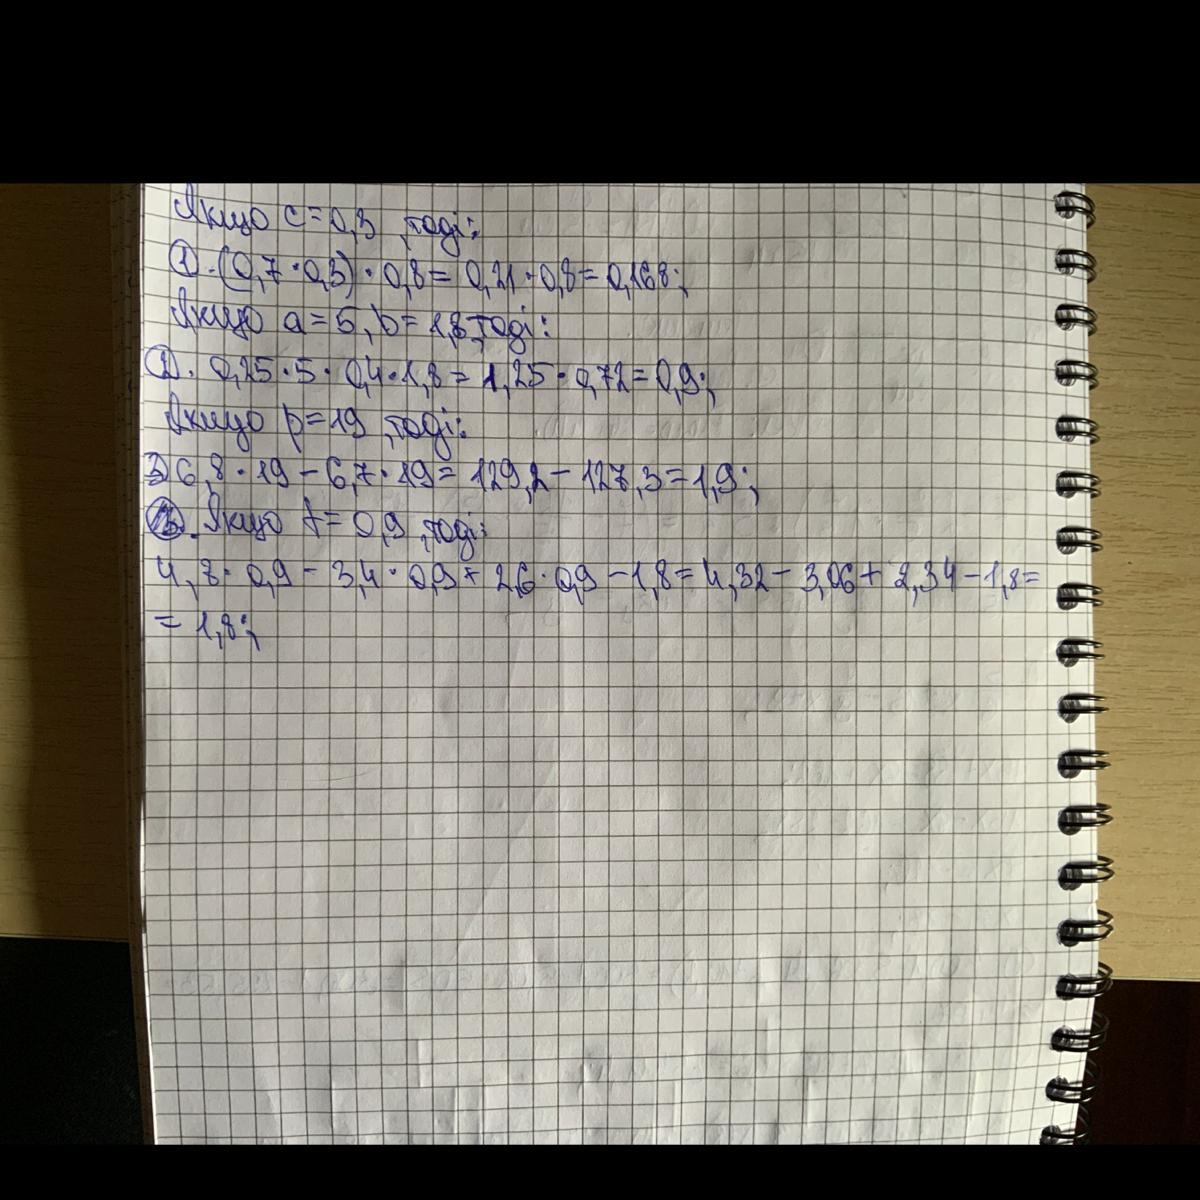 Якщо c=0,3 ,тоді:
1.(0,7·0,3)·0,8=0,21·0,8=0,168;
Якщо a=5,b=1,8,тоді:
2. 0,25·5·0,4·1,8=1,25·0,72=0,9;
Якщо p=19 ,тоді:
3)6,8·19-6,7·19=129,2-127,3=1,9;
Якщо t=0,9 ,тоді:
4,8·0,9-3,4·0,9+2,6·0,9-1,8=4,32-3,06+2,34-1,8=
=1,8;